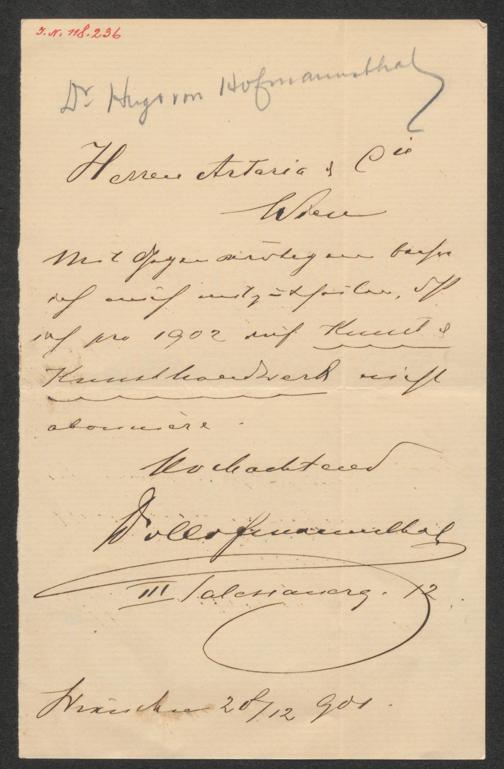 J.N. 118.236
Dr Hugo von Hofmannsthal
Herren Artaria & Cie
Wien
Mit Gegenwärtigem beehre
ich mich mitzutheilen, daß
ich pro 1902 auf Kunst &
Kunsthandwerk nicht
abonniere.
Hochachtend
Hofmannsthal
III Salesianerg. 12
28/12 901.